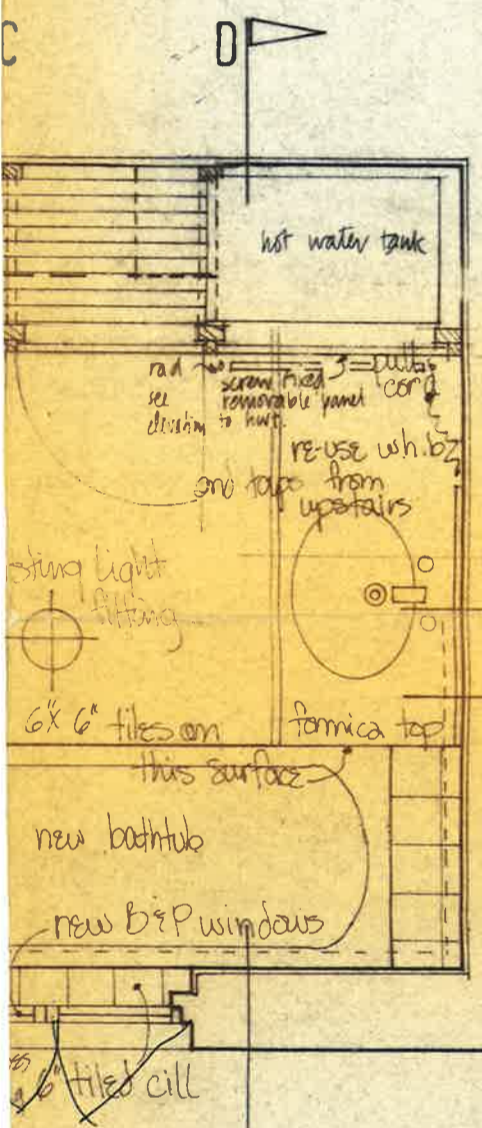 C D
hot water tank
rad
see
elevation
screw fixed
removable panel
to hwt.
pull
cord
re-use w.h.b
and taps from
upstairs
light
fitting
6"x 6" tiles on
this surface
formica top
new bathtub
new B&P windows
6" tiled cill